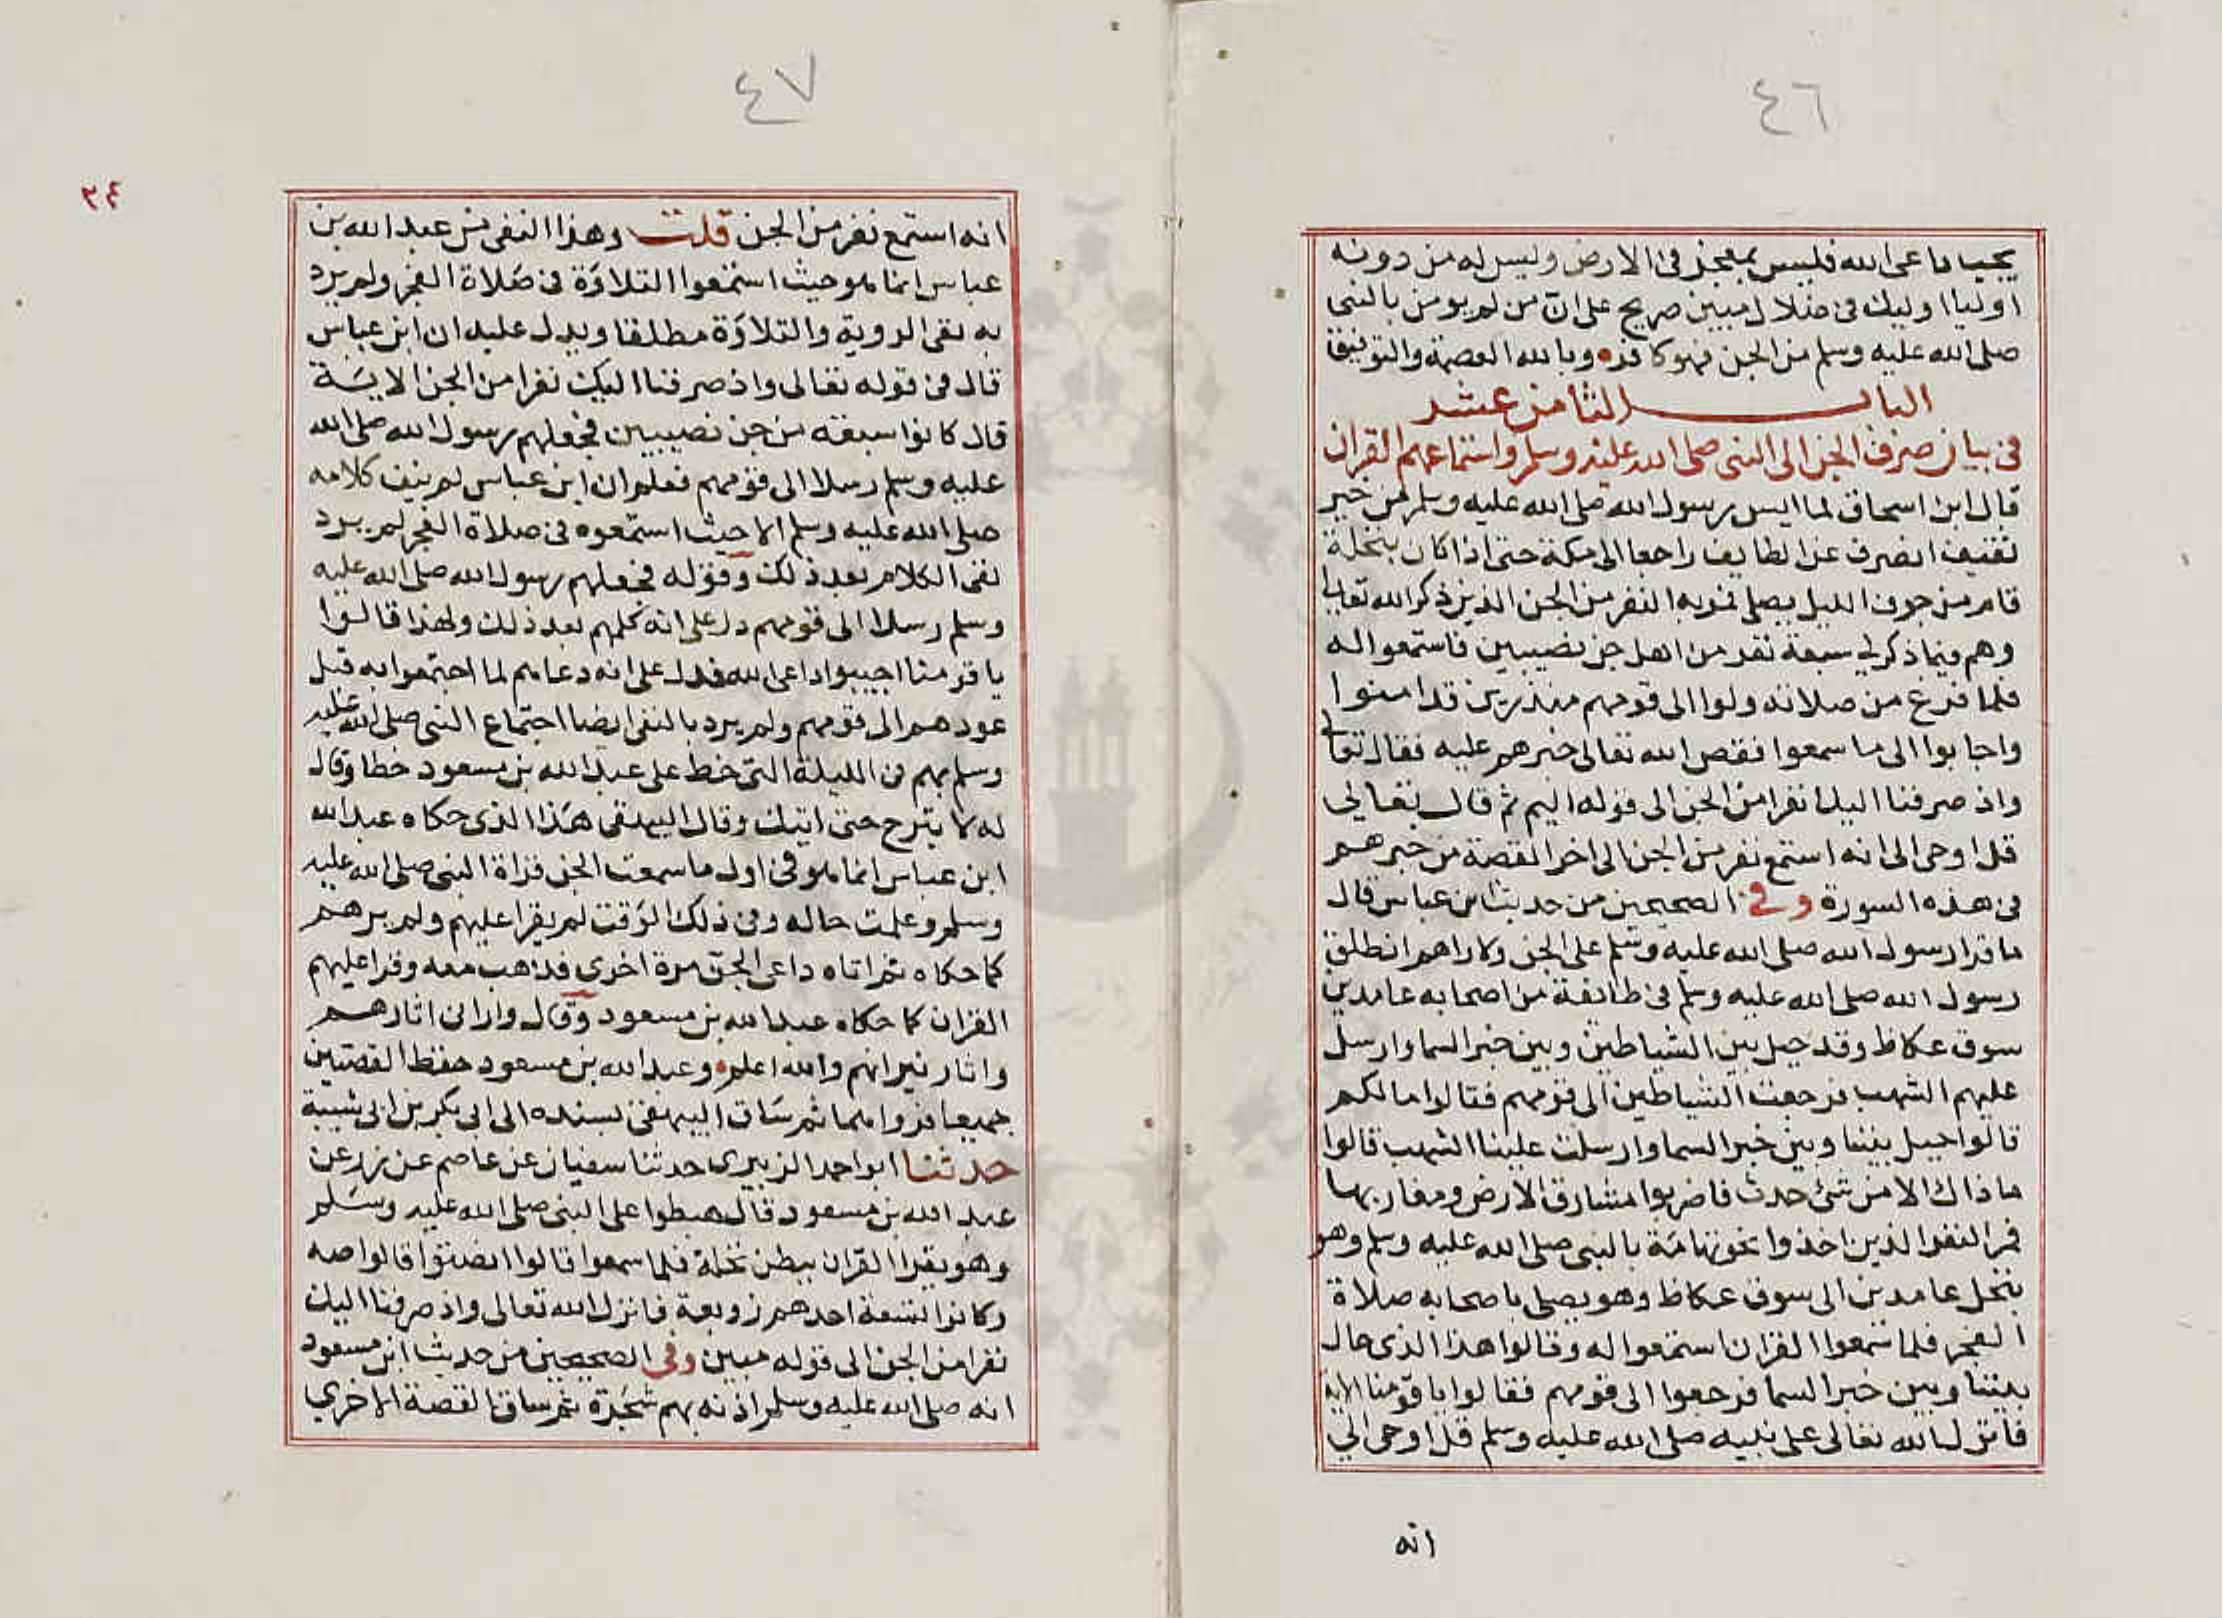 ٤٦
يجب داعى الله فليس بمعجز فى الارض وليس له من دونه
اوليا اوليك فى ضلال مبين صريح على ان من لم يومن بالنبى
صلى الله عليه وسلم من الجن فهو كافره وبالله العصمة والتوفيق
الباب الثامن عشر
فى بيان صرف الجن الى النبى صلى الله عليه وسلم واستماعهم القران
قال ابن اسحاق لما ايس رسول الله صلى الله عليه وسلم من خبر
ثقيف انصرف عن الطايف راجعا الى مكة حتى اذا كان بنخلة
قام من جوف الليل يصلى فمر به النفر من الجن الذين ذكر الله تعالى
وهم فيما ذكر لى سبعة نفر من اهل جن نصيبين فاستمعوا له
فلما فرغ من صلاته ولوا الى قومهم منذرين قد امنوا
واجابوا الى ما سمعوا فقص الله تعالى خبرهم عليه فقال تعالى
واذ صرفنا اليك نفرا من الجن الى قوله اليم ثم قال تعالى
قل اوحى الى انه استمع نفر من الجن الى اخر القصة من خبرهم
فى هذه السورة وفى الصحيحين من حديث ابن عباس قال
ما قرا رسول الله صلى الله عليه وسلم على الجن ولا راهم انطلق
رسول الله صلى الله عليه وسلم فى طائفة من اصحابه عامدين
سوق عكاظ وقد حيل بين الشياطين وبين خبر السما وارسل
عليهم الشهب فرجعت الشياطين الى قومهم فقالوا مالكم
قالوا حيل بيننا وبين خبر السما وارسلت علينا الشهب قالوا
ما ذاك الا من شئ حدث فاضربوا مشارق الارض ومغاربها
فمر النفر الذين اخذوا نحو تهامة بالنبى صلى الله عليه وسلم وهو
بنخل عامدين الى سوق عكاظ وهو يصلى باصحابه صلاة
الفجر فلما سمعوا القران استمعوا له وقالوا هذا الذى حال
بيننا وبين خبر السما فرجعوا الى قومهم فقالوا يا قومنا الاية
فانزل الله تعالى على نبيه صلى الله عليه وسلم قل اوحى الى
انه
٤٧
٢٤
انه استمع نفر من الجن قلت وهذا النفى من عبد الله بن
عباس انما هو حيث استمعوا التلاوة فى صلاة الفجر ولم يرد
به نفى الروية والتلاوة مطلقا ويدل عليه ان ابن عباس
قال فى قوله تعالى واذ صرفنا اليك نفرا من الجن الاية
قال كانوا سبعة من جن نصيبين فجعلهم رسول الله صلى الله
عليه وسلم رسلا الى قومهم فعلم ان ابن عباس لم ينف كلامه
صلى الله عليه وسلم الا حيث استمعوه فى صلاة الفجر لم يرد
نفى الكلام بعد ذلك وقوله فجعلهم رسول الله صلى الله عليه
وسلم رسلا الى قومهم دل على انه كلمهم بعد ذلك ولهذا قالوا
يا قومنا اجيبوا داعى الله فدل على انه دعاهم لما اجتمعوا به قبل
عودهم الى قومهم ولم يرد بالنفى ايضا اجتماع النبى صلى الله عليه
وسلم بهم فى الليلة التى خط على عبد الله بن مسعود خطا وقال
له لا تبرح حتى اتيك وقال البيهقى هذا الذى حكاه عبد الله
ابن عباس انما هو فى اول ما سمعت الجن قراة النبى صلى الله عليه
وسلم وعلمت حاله وفى ذلك الوقت لم يقرا عليهم ولم يرهم
كما حكاه ثم اتاه داعى الجن مرة اخرى فذهب معه وقرا عليهم
القران كما حكاه عبد الله بن مسعود وقال وارانى اثارهم
واثار نيرانهم والله اعلم وعبد الله بن مسعود حفظ القصتين
جميعا فرواهما ثم ساق البيهقى بسنده الى ابى بكر بن ابى شيبة
حدثنا ابو احمد الزبيرى حدثنا سفيان عن عاصم عن زر عن
عبد الله بن مسعود قال هبطوا على النبى صلى الله عليه وسلم
وهو يقرا القران ببطن نخلة فلما سمعوا قالوا انصتوا قالوا صه
وكانوا تسعة احدهم زوبعة فانزل الله تعالى واذ صرفنا اليك
نفرا من الجن الى قوله مبين وفى الصحيحين من حديث ابن مسعود
انه صلى الله عليه وسلم اذنه بهم شجرة ثم ساق القصة الاخرى